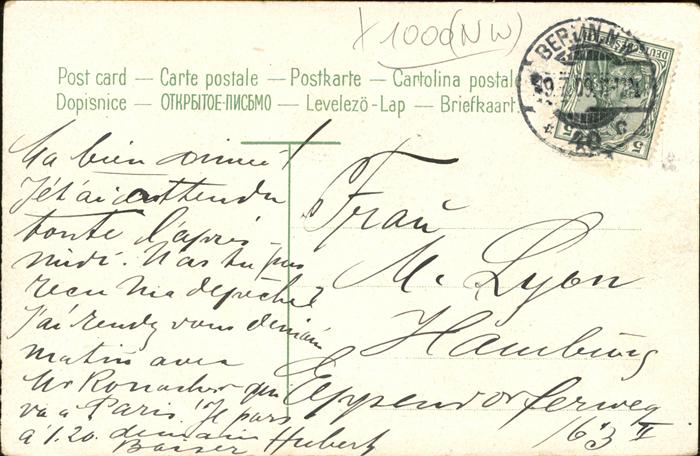 X 1000 (NW)
Post card — Carte postale — Postkarte — Cartolina postale
Dopisnice — ОТКРЫТОЕ-ПИСЬМО — Levelezö-Lap — Briefkaart.
BERLIN N.W.
DEUTSCHES REICH
5 5
Ma bien aimée!
Je t'ai attendu
toute l'après
midi. N'as tu pas
recu ma depeche?
J'ai rendez vous demain
matin avec
Mr Ronacher qui
va a Paris. Je pars
à 1.20. demain
Baiser Hubert
Frau
M. Lyon
Hamburg
Eppendorferweg
163 II